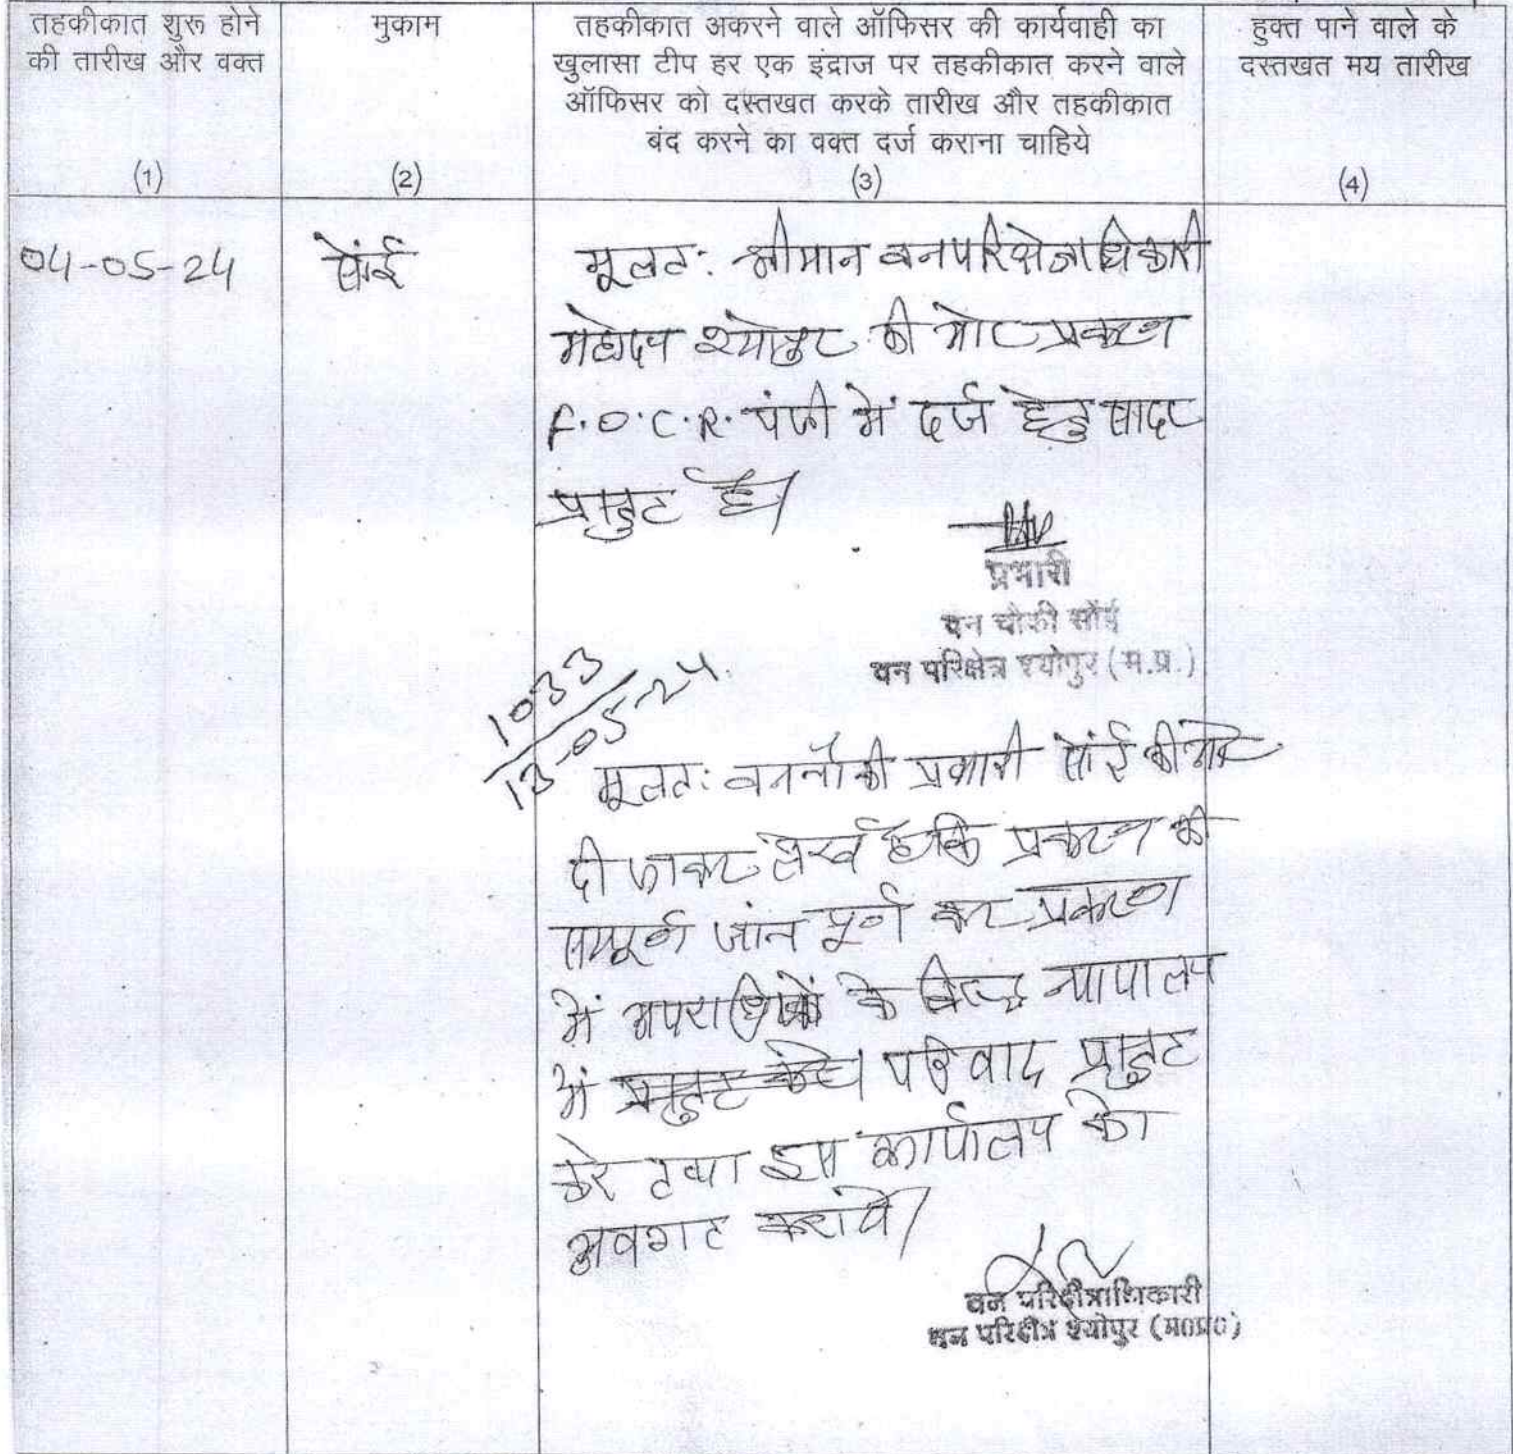 तहकीकात शुरू होने
की तारीख और वक्त
(1)
मुकाम
(2)
तहकीकात अकरने वाले ऑफिसर की कार्यवाही का
खुलासा टीप हर एक इंद्राज पर तहकीकात करने वाले
ऑफिसर को दस्तखत करके तारीख और तहकीकात
बंद करने का वक्त दर्ज कराना चाहिये
(3)
हुक्त पाने वाले के
दस्तखत मय तारीख
(4)
04-05-24
सोंई
मूलतः श्रीमान वनपरिक्षेत्राधिकारी
महोदय श्योपुर की ओर प्रकरण
F.O.C.R. पंजी में दर्ज हेतु सादर
प्रस्तुत है।
प्रभारी
वन चौकी सोंई
वन परिक्षेत्र श्योपुर (म.प्र.)
1033
13-05-24.
मूलतः वनचौकी प्रभारी सोंई की ओर
दी जाकर लेख है कि प्रकरण की
सम्पूर्ण जांच पूर्ण कर प्रकरण
में अपराधियों के विरूद्ध न्यायालय
में प्रस्तुत करें। परिवाद प्रस्तुत
करे तथा इस कार्यालय को
अवगत करावे।
वन परिक्षेत्राधिकारी
वन परिक्षेत्र श्योपुर (म0प्र0)